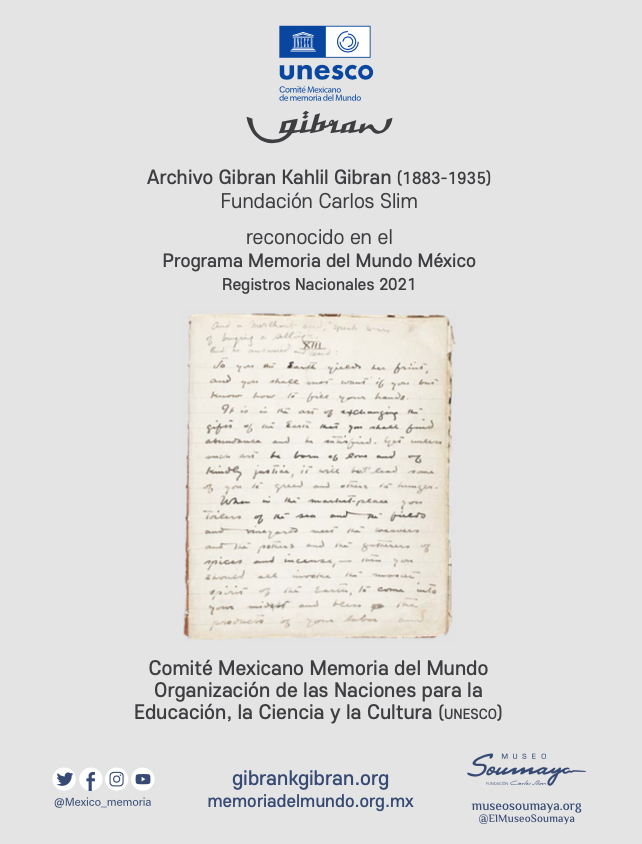 unesco
Comité Mexicano
de memoria del Mundo
gibran
Archivo Gibran Kahlil Gibran (1883-1935)
Fundación Carlos Slim
reconocido en el
Programa Memoria del Mundo México
Registros Nacionales 2021
And a merchant said, Speak to us
of buying & selling.
And he answered and said:
XIII
To you the Earth yields her fruit,
and you shall not want if you but
know how to fill your hands.
It is in the art of exchanging the
gifts of the Earth that you shall find
abundance and be satisfied. Yet unless
be born of love and of
kindly justice, it will but lead some
of you to greed and others to hunger.
When in the market-place you
toilers of the sea and the fields
and vineyards meet the weavers
and the potters and the gatherers of
spices and incense, – then you
should all invoke the master
spirit of the Earth, to come into
your midst and bless the
products of your labor and
Comité Mexicano Memoria del Mundo
Organización de las Naciones para la
Educación, la Ciencia y la Cultura (UNESCO)
@Mexico_memoria
gibrankgibran.org
memoriadelmundo.org.mx
MUSEO
Soumaya
FUNDACIÓN Carlos Slim
museosoumaya.org
@ElMuseoSoumaya